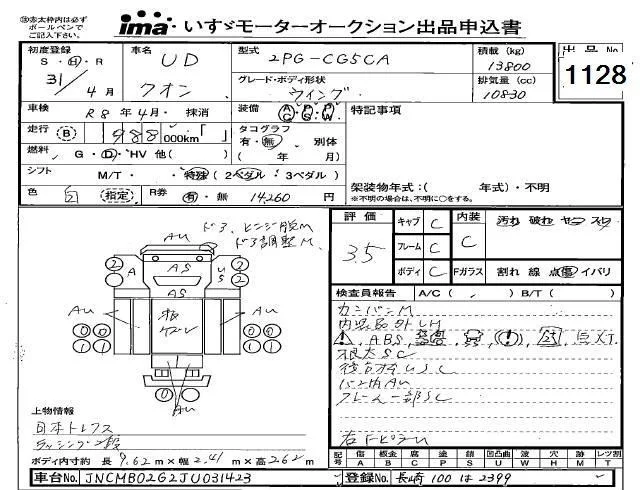 ※赤太枠内は必ず
ボールペンで
ご記入下さい。
ima いすゞモーターオークション出品申込書
初度登録 S・H・R 31年 4月
車名 UD クオン
型式 2PG-CG5CA
積載 (kg) 13800
出品No. 1128
グレード・ボディ形状 ウイング
排気量 (cc) 10830
車検 R8年4月・抹消
装備 AC・PS・PW
特記事項
走行 B 988000km「 」
タコグラフ 有・無 別体
( 年 月)
燃料 G・D・HV 他( )
シフト M/T・ ・特殊 (2ペダル / 3ペダル)
架装物年式:( 年式)・不明
※不明の場合は、不明に○をする。
色 (指定)
R券 有・無 14260円
ドア、ヒンジ M
ドア調整M
AU
A
AS
US
2 2 2
AS
AU AU
0 0 0 0
1 1 1 1
AU
評価 3.5
キャブ C
フレーム C
ボディ C
内装 C
汚れ 破れ ヤニ スレ
Fガラス 割れ 線 点 傷 イバリ
検査員報告 A/C( ) B/T( )
内装品外しM
ABS
根太SC
バン内AU
フレーム一部SC
上物情報
日本トレクス
ボディ内寸約 長 9.62m×幅 2.41m×高 2.62m
記号 傷 板金 腐 塗 錆 凹凸曲 波 穴 時 レツ割
A B C P S U W H M T
車台No. JNCMB02G2JU031423
登録No. 長崎 100 は 2399